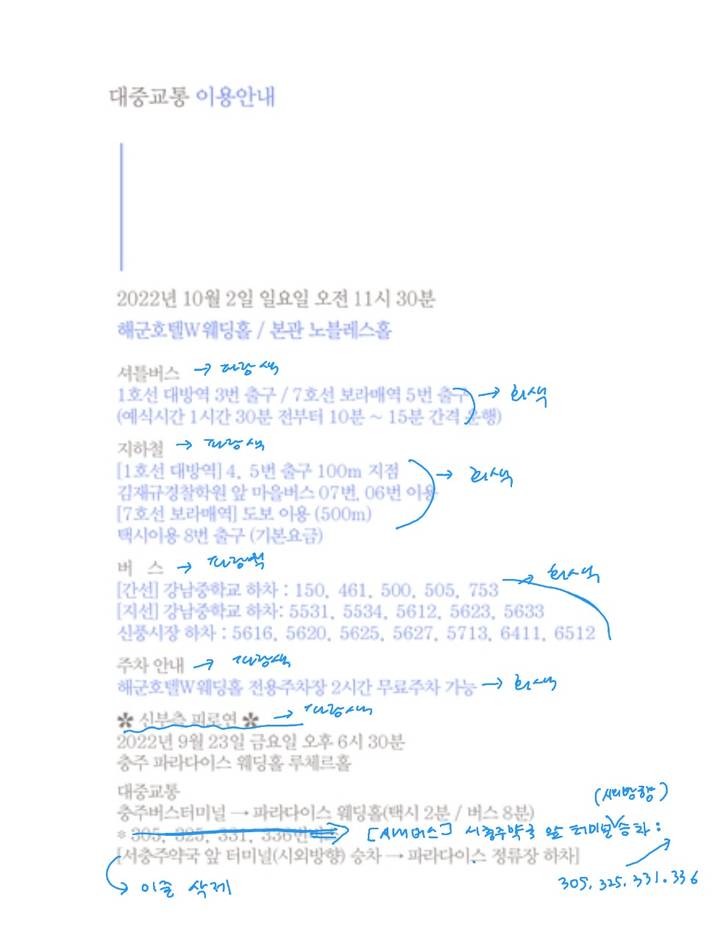 대중교통 이용안내
2022년 10월 2일 일요일 오전 11시 30분
해군호텔W웨딩홀 / 본관 노블레스홀
셔틀버스 → 파랑색
1호선 대방역 3번 출구 / 7호선 보라매역 5번 출구 → 회색
(예식시간 1시간 30분 전부터 10분 ~ 15분 간격 운행)
지하철 → 파랑색
[1호선 대방역] 4, 5번 출구 100m 지점
김재규경찰학원 앞 마을버스 07번, 06번 이용 → 회색
[7호선 보라매역] 도보 이용 (500m)
택시이용 8번 출구 (기본요금)
버 스 → 파랑색
[간선] 강남중학교 하차 : 150, 461, 500, 505, 753 → 회색
[지선] 강남중학교 하차: 5531, 5534, 5612, 5623, 5633
신풍시장 하차 : 5616, 5620, 5625, 5627, 5713, 6411, 6512
주차 안내 → 파랑색
해군호텔W웨딩홀 전용주차장 2시간 무료주차 가능 → 회색
✲ 신부측 피로연 ✲ → 파랑색
2022년 9월 23일 금요일 오후 6시 30분
충주 파라다이스 웨딩홀 루체르홀
대중교통
충주버스터미널 → 파라다이스 웨딩홀(택시 2분 / 버스 8분)
(시외방향)
* 305, 325, 331, 336번버스 → [시내버스] 서충주약국 앞 터미널 승차 :
[서충주약국 앞 터미널(시외방향) 승차 → 파라다이스 정류장 하차]
305. 325. 331. 336
→ 이줄 삭제